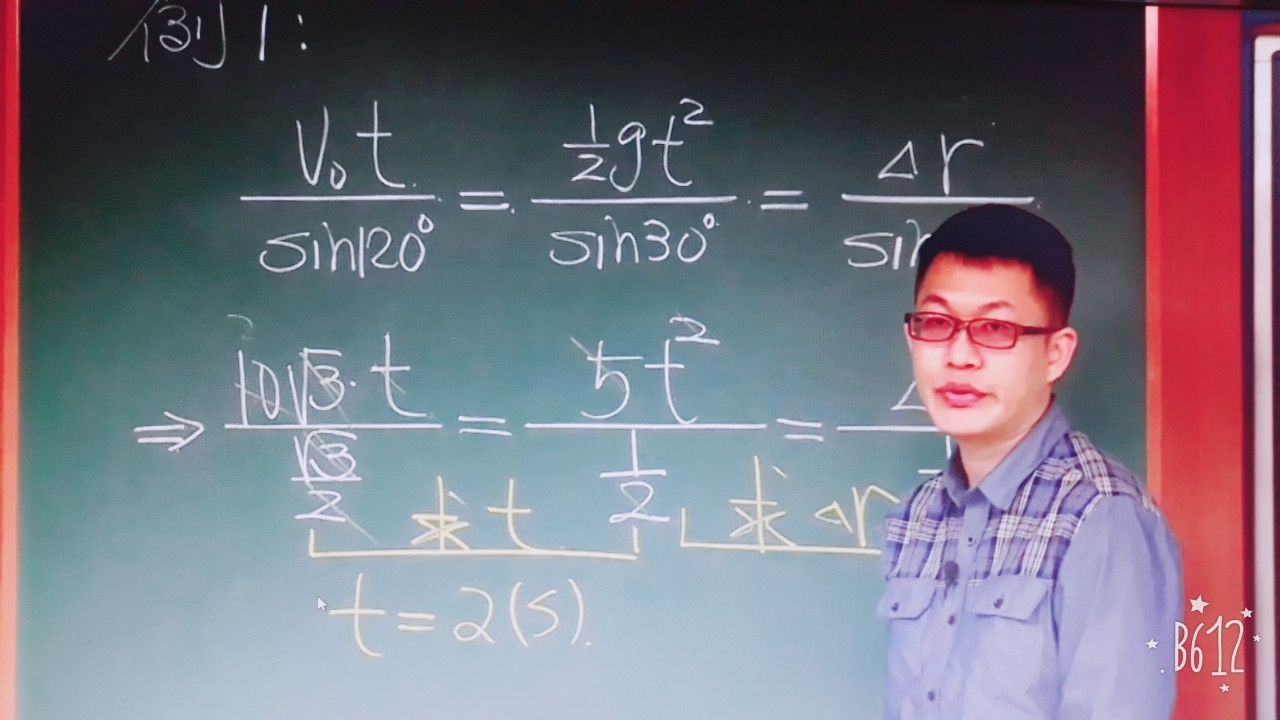 例1:
V₀t/sin120° = ½gt²/sin30° = Δr/sin
⇒ 10√3·t/(√3/2) = 5t²/(1/2) =
求t 求Δr
t=2(s).
B612